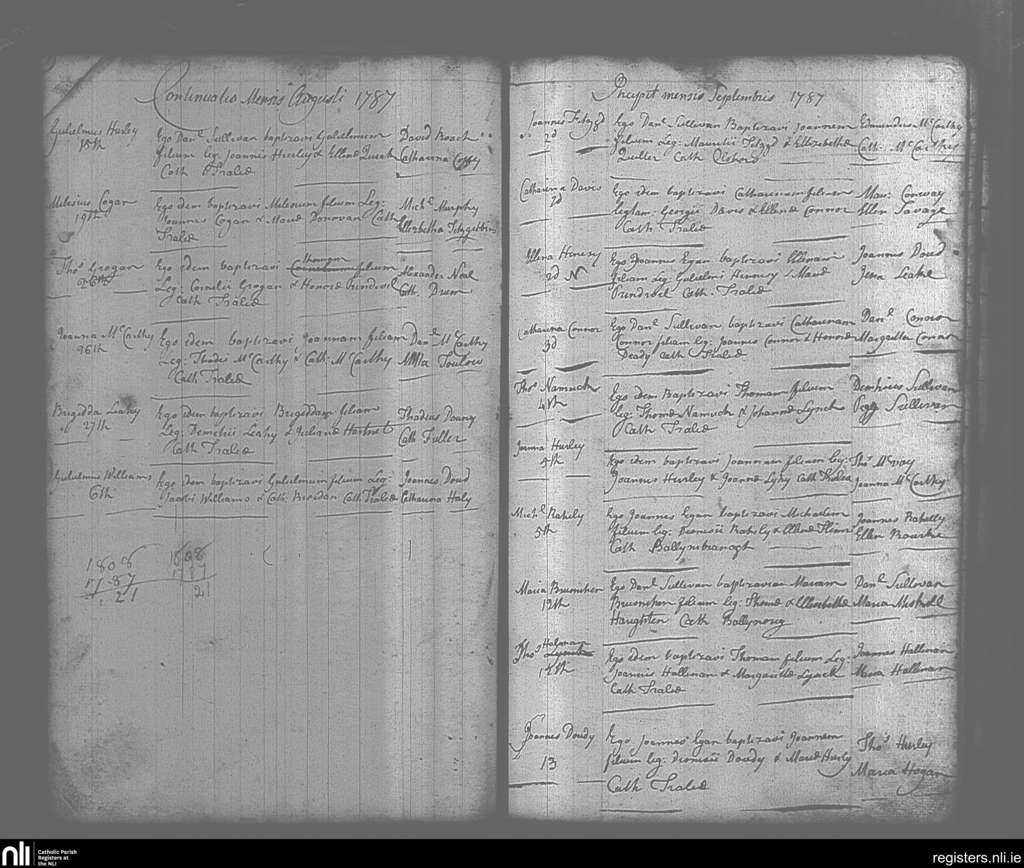 Continuatio Mensis Augusti 1787
Gulielmus Hurley
15th
Ego Danl Sullivan baptizavi Gulielmum
filium leg: Joannis Hurley & Ellenæ Quirk
Cath Traliæ
David Roach
Catharina Coffey
Milesius Cogan
19th
Ego idem baptizavi Milesium filium Leg:
Joannis Cogan & Mariæ Donovan Cath
Traliæ
Michl Murphy
Elizabetha Fitzgibbon
Thos Grogan
26th
Ego idem baptizavi Thomam filium
Leg: Cornelii Grogan & Honoræ Prindevil
Cath Traliæ
Alexander Neal
Cath: Drum
Joanna McCarthy
26th
Ego idem baptizavi Joannam filiam
Leg: Thadei McCarthy & Cath: McCarthy
Cath Traliæ
Danl McCarthy
Brigidda Leahy
27th
Ego idem baptizavi Brigiddam filiam
Leg: Demetrii Leahy & Julianæ Hartnet
Cath Traliæ
Thadius
Cath Fuller
Gulielmus Williams
6th
Ego idem baptizavi Gulielmum filium Leg:
Jacobi Williams & Cath: Riordan Cath Traliæ
Joannes Doud
Catharina Haly
1808
1787
21
1808
21
Incipit mensis Septembris 1787
Joannes Fitzgd
2d
Ego Danl Sullivan Baptizavi Joannem
filium Leg: Mauritii Fitzgd & Ellizabethæ
Cath
Edmundus McCarthy
Cath: McCarthy
Catharina Davis
2d
Ego idem baptizavi Catharinam filiam
legtam: Georgii Davis & Ellenæ Connor
Cath Traliæ
Mau: Conway
Ellen Savage
Ellena Henesy
2d
Ego Joannes Egan baptizavi Ellenam
filiam Leg: Gulielmi Hennesy & Mariæ
Prindevil Cath: Traliæ
Joannes Doud
Jena Leahe
Catharina Connor
3d
Ego Danl Sullivan baptizavi Catharinam
Connor filiam leg: Joannis Connor & Honoræ
Deady Cath Traliæ
Danl Connor
Margaritta Connor
Thos Namuck
4th
Ego idem Baptizavi Thomam filium
leg: Thomæ Namuck & Johannæ Lynch
Cath Traliæ
Demtrius Sullivan
Pegg Sullivan
Joanna Hurley
5th
Ego idem baptizavi Joannam filiam leg:
Joannis Hurley & Joannæ Cath Traliæ
Thos
Joanna McCarthy
Michl Rahily
5th
Ego Joannes Egan baptizavi Michaelem
filium leg: Dionisii Rahily & Ellenæ
Cath
Joannes Rahilly
Ellen Rourke
Maria Brusnihen
12th
Ego Danl Sullivan baptizaviae Mariam
Brusnihen filiam leg: Thomæ & Elizabethæ
Haughten Cath
Danl Sullivan
Maria
Halinan
Thos
12th
Ego idem baptizavi Thomam filium Leg:
Joannis Hallinan & Margarittæ Lynch
Cath Traliæ
Joannes Hallinan
Maria Hallinan
Joannes Doudy
13
Ego Joannes Egan baptizavi Joannem
filium leg: Dionisii Doudy & Mariæ Hurly
Cath Traliæ
Thos Hurley
Maria Hogan
nli
Catholic Parish
Registers at
the NLI
registers.nli.ie